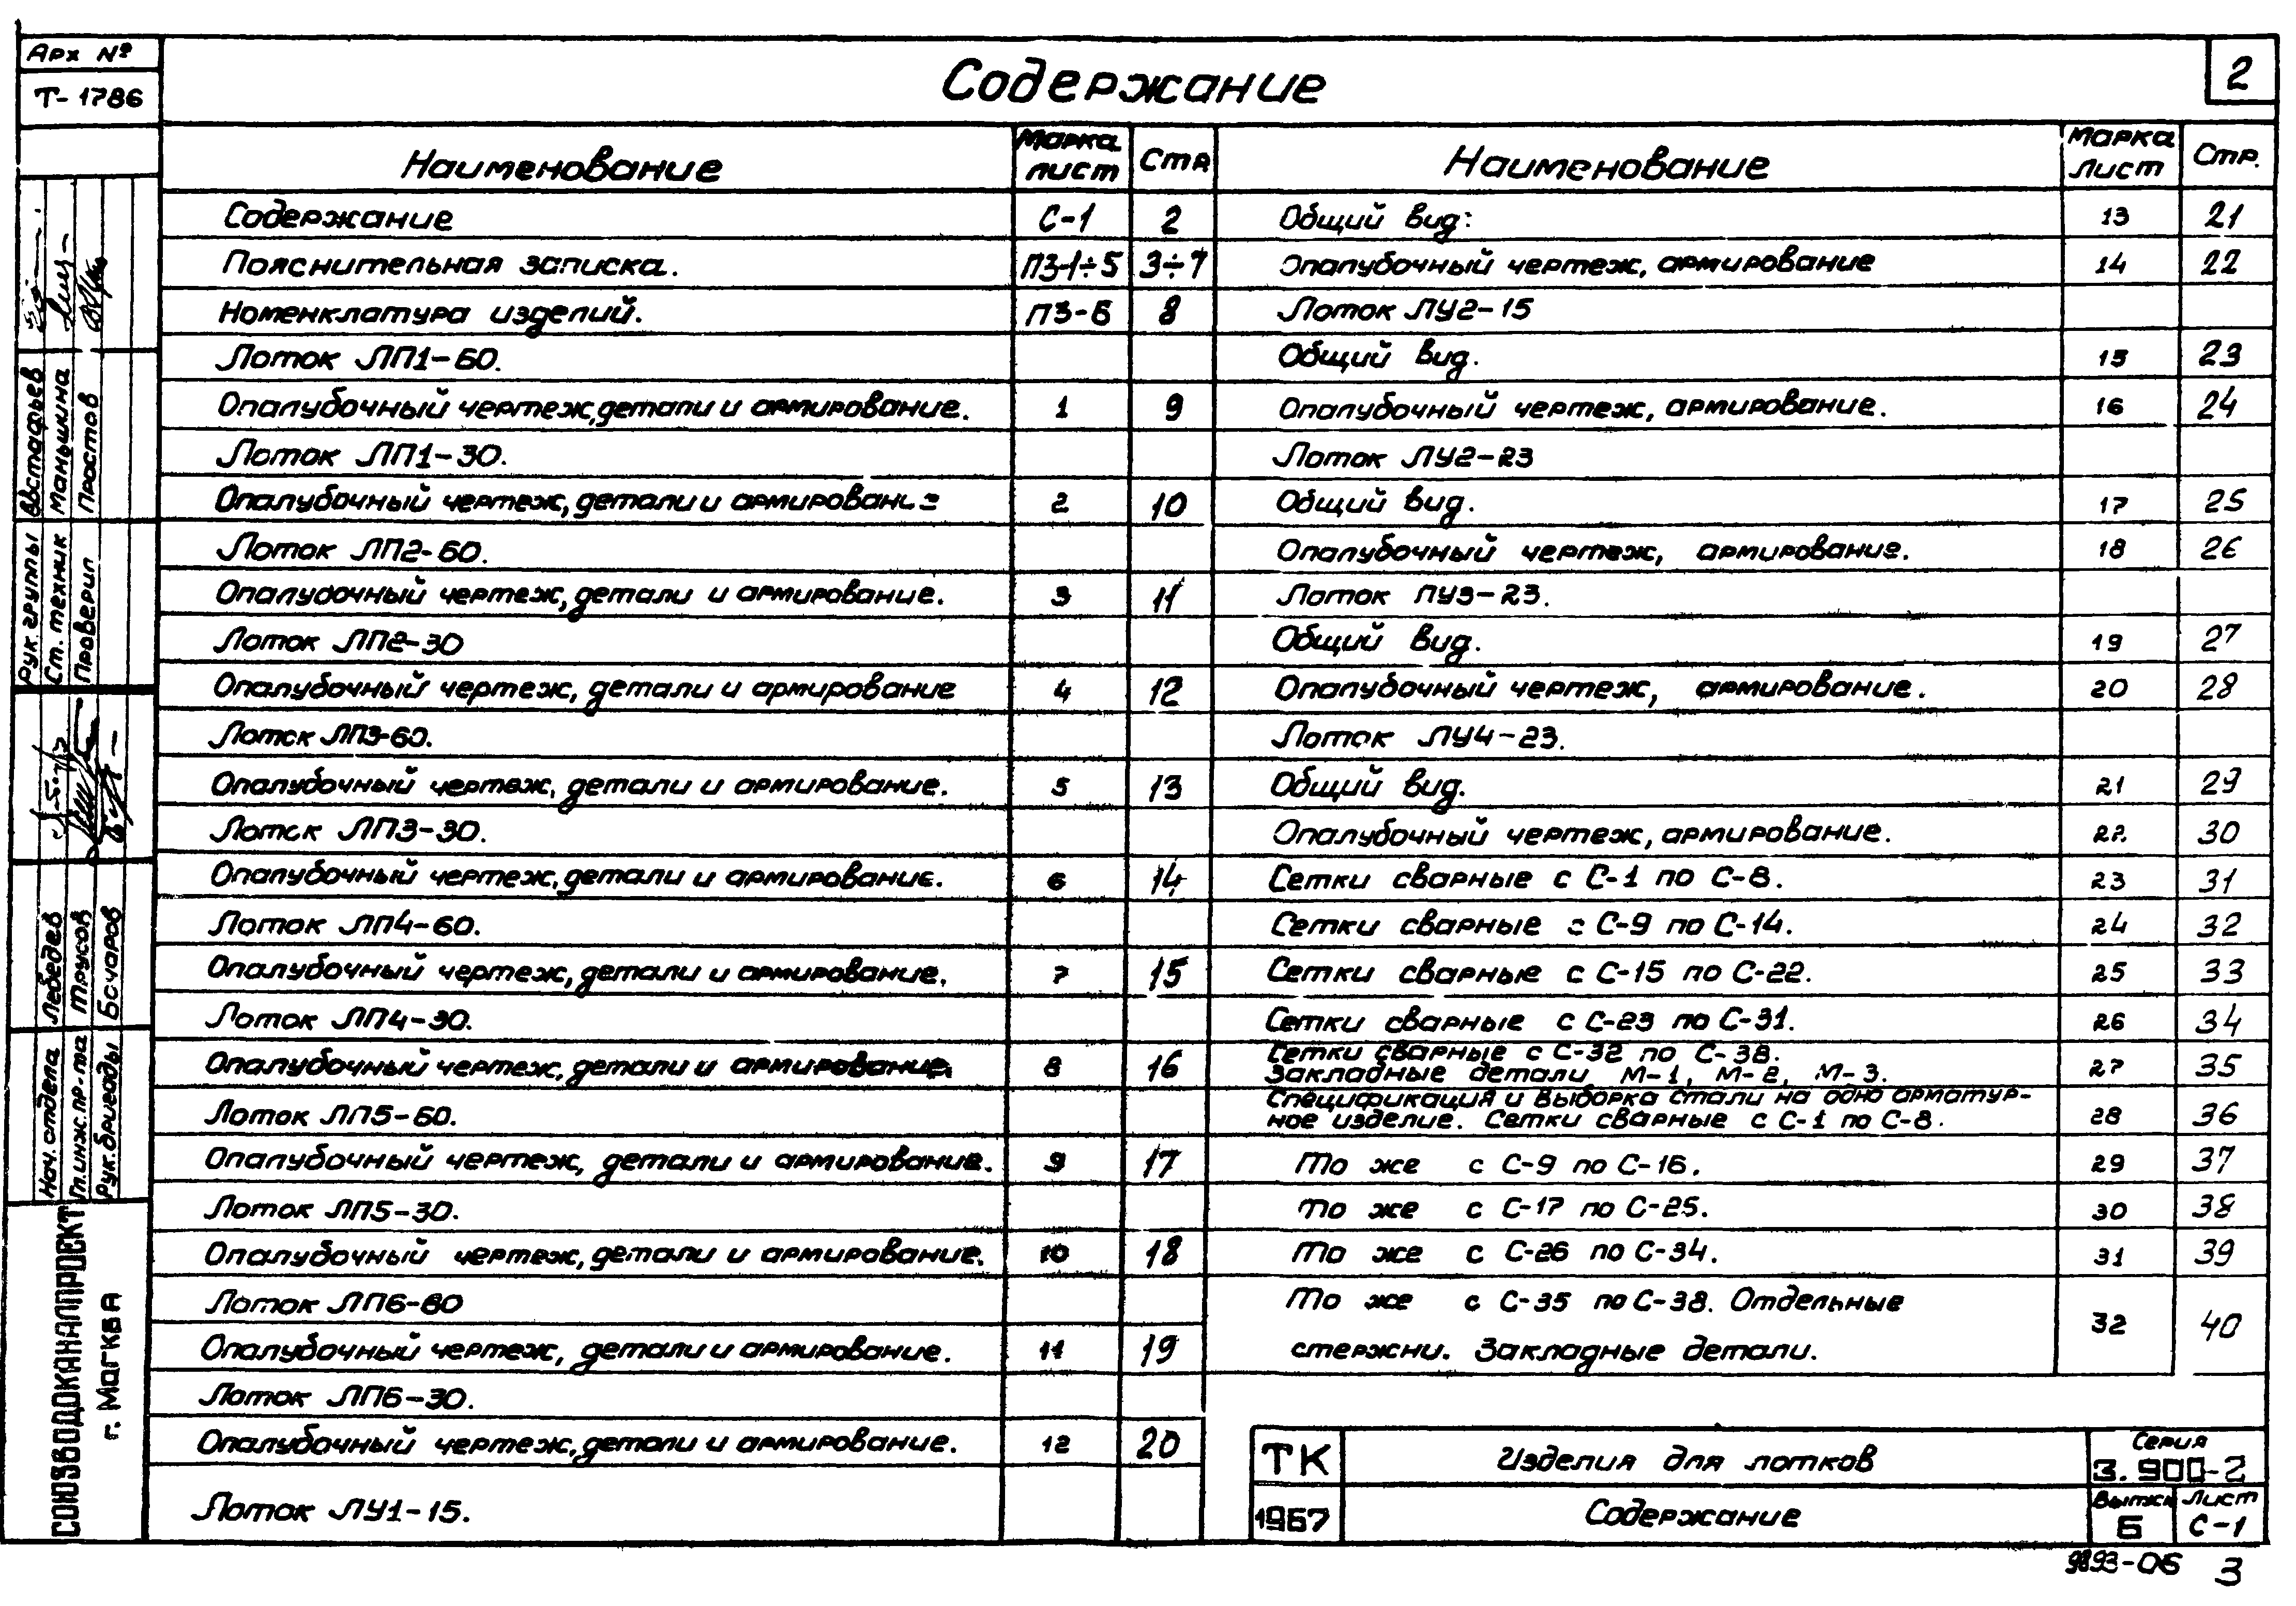 Арх №
Т-1786
Содержание
2
Наименование Марка лист Стр
Содержание С-1 2
Пояснительная записка. ПЗ-1÷5 3÷7
Номенклатура изделий. ПЗ-6 8
Лоток ЛП1-60.
Опалубочный чертеж, детали и армирование. 1 9
Лоток ЛП1-30.
Опалубочный чертеж, детали и армирование 2 10
Лоток ЛП2-60.
Опалубочный чертеж, детали и армирование. 3 11
Лоток ЛП2-30
Опалубочный чертеж, детали и армирование 4 12
Лоток ЛП3-60.
Опалубочный чертеж, детали и армирование. 5 13
Лоток ЛП3-30.
Опалубочный чертеж, детали и армирование. 6 14
Лоток ЛП4-60.
Опалубочный чертеж, детали и армирование. 7 15
Лоток ЛП4-30.
Опалубочный чертеж, детали и армирование. 8 16
Лоток ЛП5-60.
Опалубочный чертеж, детали и армирование. 9 17
Лоток ЛП5-30.
Опалубочный чертеж, детали и армирование. 10 18
Лоток ЛП6-60
Опалубочный чертеж, детали и армирование. 11 19
Лоток ЛП6-30.
Опалубочный чертеж, детали и армирование. 12 20
Лоток ЛУ1-15.
Наименование Марка лист Стр.
Общий вид: 13 21
Опалубочный чертеж, армирование 14 22
Лоток ЛУ2-15
Общий вид. 15 23
Опалубочный чертеж, армирование. 16 24
Лоток ЛУ2-23
Общий вид. 17 25
Опалубочный чертеж, армирование. 18 26
Лоток ЛУ3-23.
Общий вид. 19 27
Опалубочный чертеж, армирование. 20 28
Лоток ЛУ4-23.
Общий вид. 21 29
Опалубочный чертеж, армирование. 22 30
Сетки сварные с С-1 по С-8. 23 31
Сетки сварные с С-9 по С-14. 24 32
Сетки сварные с С-15 по С-22. 25 33
Сетки сварные с С-23 по С-31. 26 34
Сетки сварные с С-32 по С-38.
Закладные детали М-1, М-2, М-3. 27 35
Спецификация и выборка стали на одно арматур-
ное изделие. Сетки сварные с С-1 по С-8. 28 36
То же с С-9 по С-16. 29 37
То же с С-17 по С-25. 30 38
То же с С-26 по С-34. 31 39
То же с С-35 по С-38. Отдельные
стержни. Закладные детали. 32 40
ТК Изделия для лотков Серия 3.900-2
1967 Содержание Выпуск 6 Лист С-1
9893-06 3
Рук. группы Евстафьев
Ст. техник Манышкина
Проверил Простов
Нач. отдела Лебедев
Гл. инж. пр-та Трусов
Рук. бригады Бочаров
СОЮЗВОДОКАНАЛПРОЕКТ
г. Москва